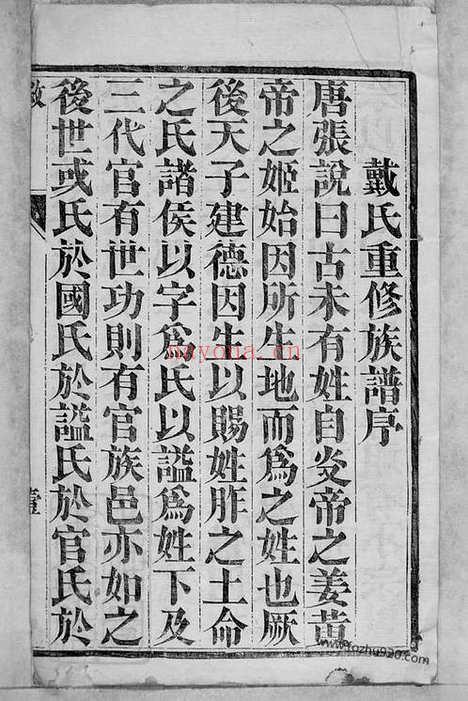 戴氏重修族譜序
唐張說曰古未有姓自炎帝之姜黃
帝之姬始因所生地而爲之姓也厥
後天子建德因生以賜姓胙之土命
之氏諸侯以字爲氏以謚爲姓下及
三代官有世功則有官族邑亦如之
後世或氏於國氏於謚氏於官氏於
nayona.cn